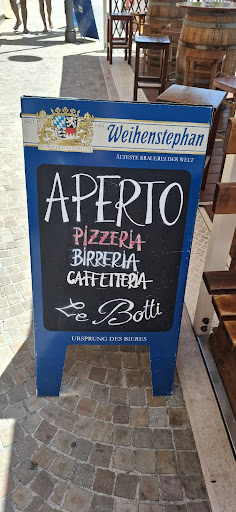 Weihenstephan
ÄLTESTE BRAUEREI DER WELT
APERTO
PIZZERIA
BIRRERIA
CAFFETTERIA
Le Botti
URSPRUNG DES BIERES